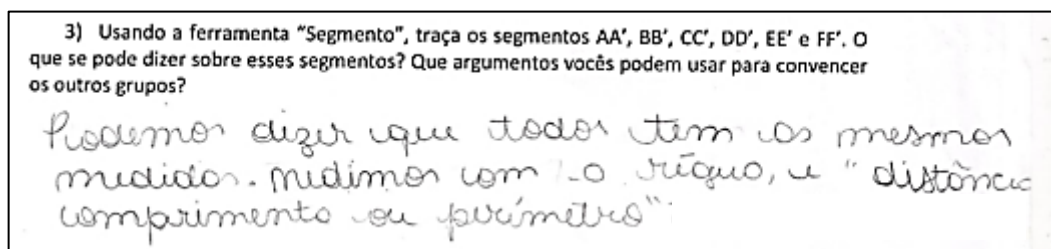 3) Usando a ferramenta "Segmento", traça os segmentos AA', BB', CC', DD', EE' e FF'. O
que se pode dizer sobre esses segmentos? Que argumentos vocês podem usar para convencer
os outros grupos?
Podemos dizer que todos tem as mesmas
medidas. medimos com a régua, e "distância
comprimento ou perímetro".